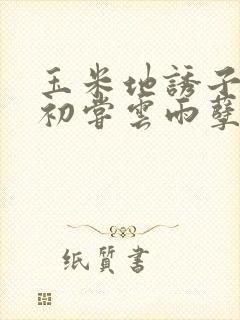 玉米地誘子
初嘗雲雨孽
纸質書